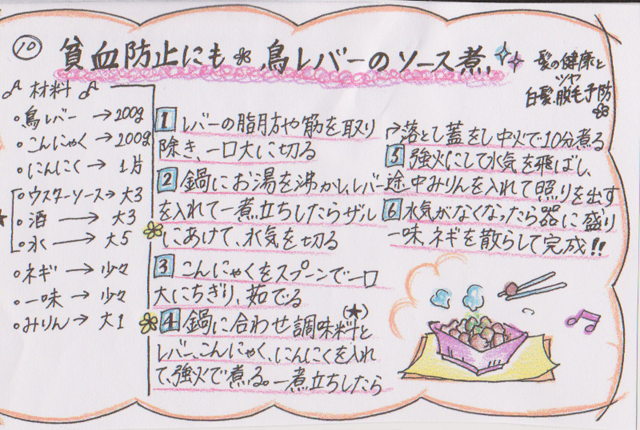 ⑩ 貧血防止にも 鳥レバーのソース煮
髪の健康と
ツヤ
白髪、脱毛予防
材料
・鳥レバー→200g
・こんにゃく→200g
・にんにく→1片
・ウスターソース→大3
★
・酒→大3
・水→大5
・ネギ→少々
・一味→少々
・みりん→大1
1 レバーの脂肪や筋を取り
除き、一口大に切る
2 鍋にお湯を沸かし、レバー
を入れて一煮立ちしたらザル
にあけて、水気を切る
3 こんにゃくをスプーンで一口
大にちぎり、茹でる
4 鍋に合わせ調味料(★)と
レバー、こんにゃく、にんにくを入れ
て、強火で煮る。一煮立ちしたら
→落とし蓋をし中火で10分煮る
5 強火にして水気を飛ばし、
途中みりんを入れて照りを出す
6 水気がなくなったら器に盛り
一味、ネギを散らして完成!!